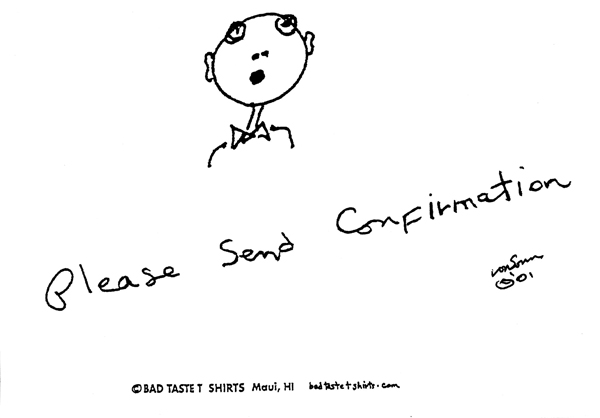 Please Send Confirmation
©'01
© BAD TASTE T SHIRTS Maui, HI badtastetshirts.com